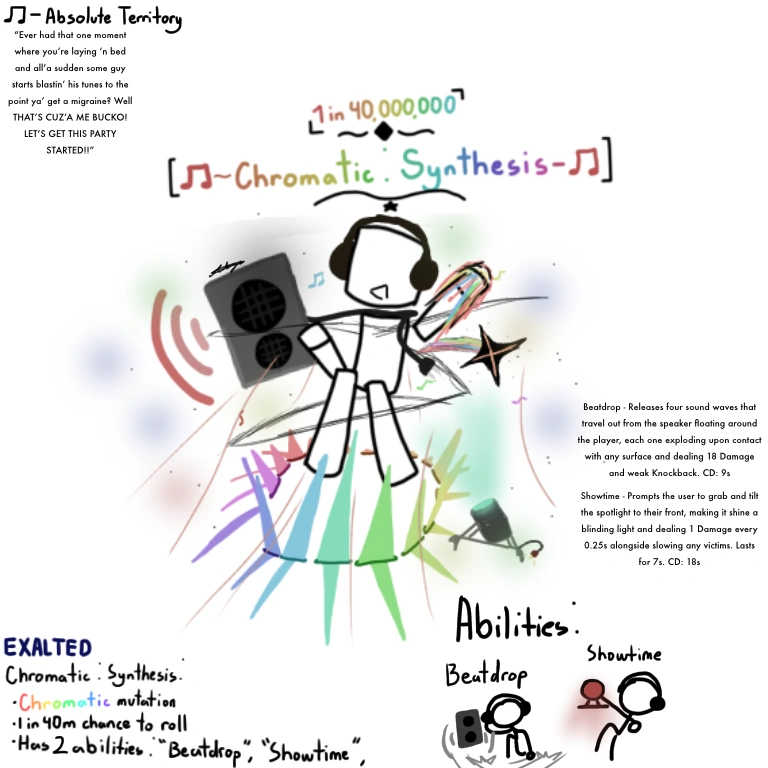 ♫ - Absolute Territory
"Ever had that one moment
where you're laying 'n bed
and all'a sudden some guy
starts blastin' his tunes to the
point ya' get a migraine? Well
THAT'S CUZ'A ME BUCKO!
LET'S GET THIS PARTY
STARTED!!"
1 in 40,000,000
[♫~Chromatic : Synthesis-♫]
Beatdrop - Releases four sound waves that
travel out from the speaker floating around
the player, each one exploding upon contact
with any surface and dealing 18 Damage
and weak Knockback. CD: 9s
Showtime - Prompts the user to grab and tilt
the spotlight to their front, making it shine a
blinding light and dealing 1 Damage every
0.25s alongside slowing any victims. Lasts
for 7s. CD: 18s
EXALTED
Chromatic : Synthesis:
·Chromatic mutation
·1 in 40m chance to roll
·Has 2 abilities: "Beatdrop", "Showtime",
Abilities:
Beatdrop
Showtime